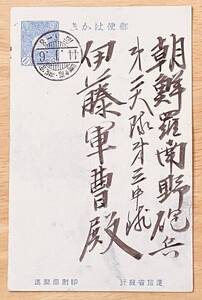 郵便はかき
朝鮮羅南野砲兵
才二大隊才三中隊
伊藤軍曹殿
逓信省發行
印刷局製造